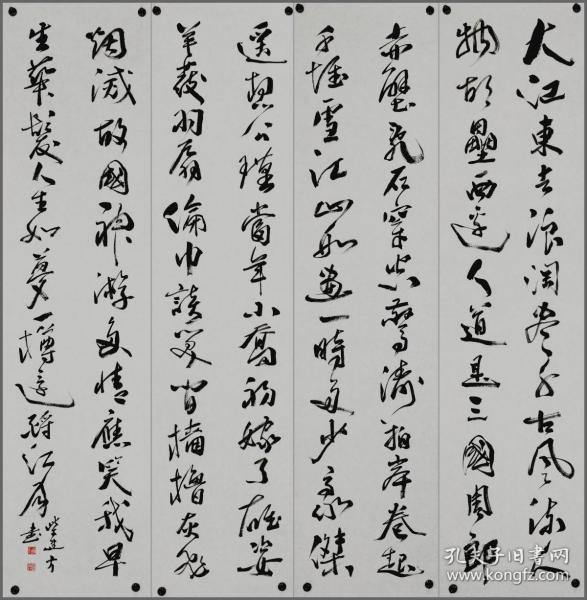 大江東去浪淘盡千古風流人
物故壘西邊人道是三國周郎
赤壁亂石穿空驚濤拍岸卷起
千堆雪江山如畫一時多少豪傑
遥想公瑾當年小喬初嫁了雄姿
英發羽扇綸巾談笑間檣櫓灰飛
烟滅故國神游多情應笑我早
生華髮人生如夢一樽還酹江月
書
孔夫子旧书网
www.kongfz.com